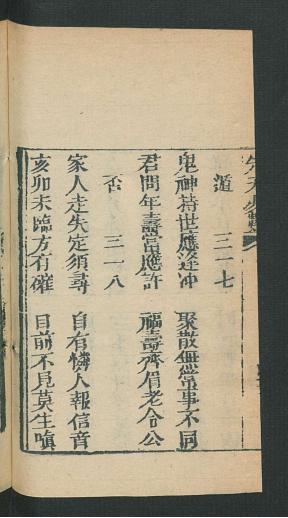 遁　三一七
鬼神持世應逢冲　聚散無常事不同
君問年壽當應許　福壽齊眉老合公
否　三一八
家人走失定須尋　自有憐人報信音
亥卯未臨方有確　目前不見莫生嗔